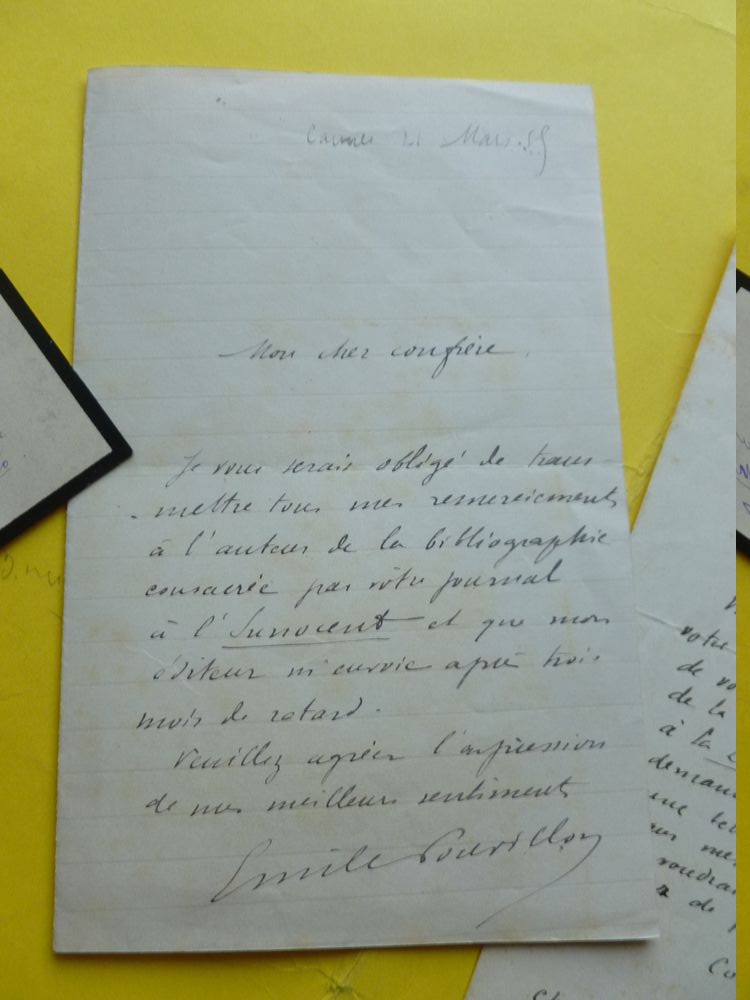 Cannes 21 Mars
Mon cher confrère,
Je vous serais obligé de trans-
-mettre tous mes remerciements
à l'auteur de la bibliographie
consacrée par votre journal
à l'Innocent et que mon
éditeur m'envoie après trois
mois de retard.
Veuillez agréer l'expression
de mes meilleurs sentiments
Emile Pouvillon
votre
de vo
de la
à la
deman
une
voudrai
de